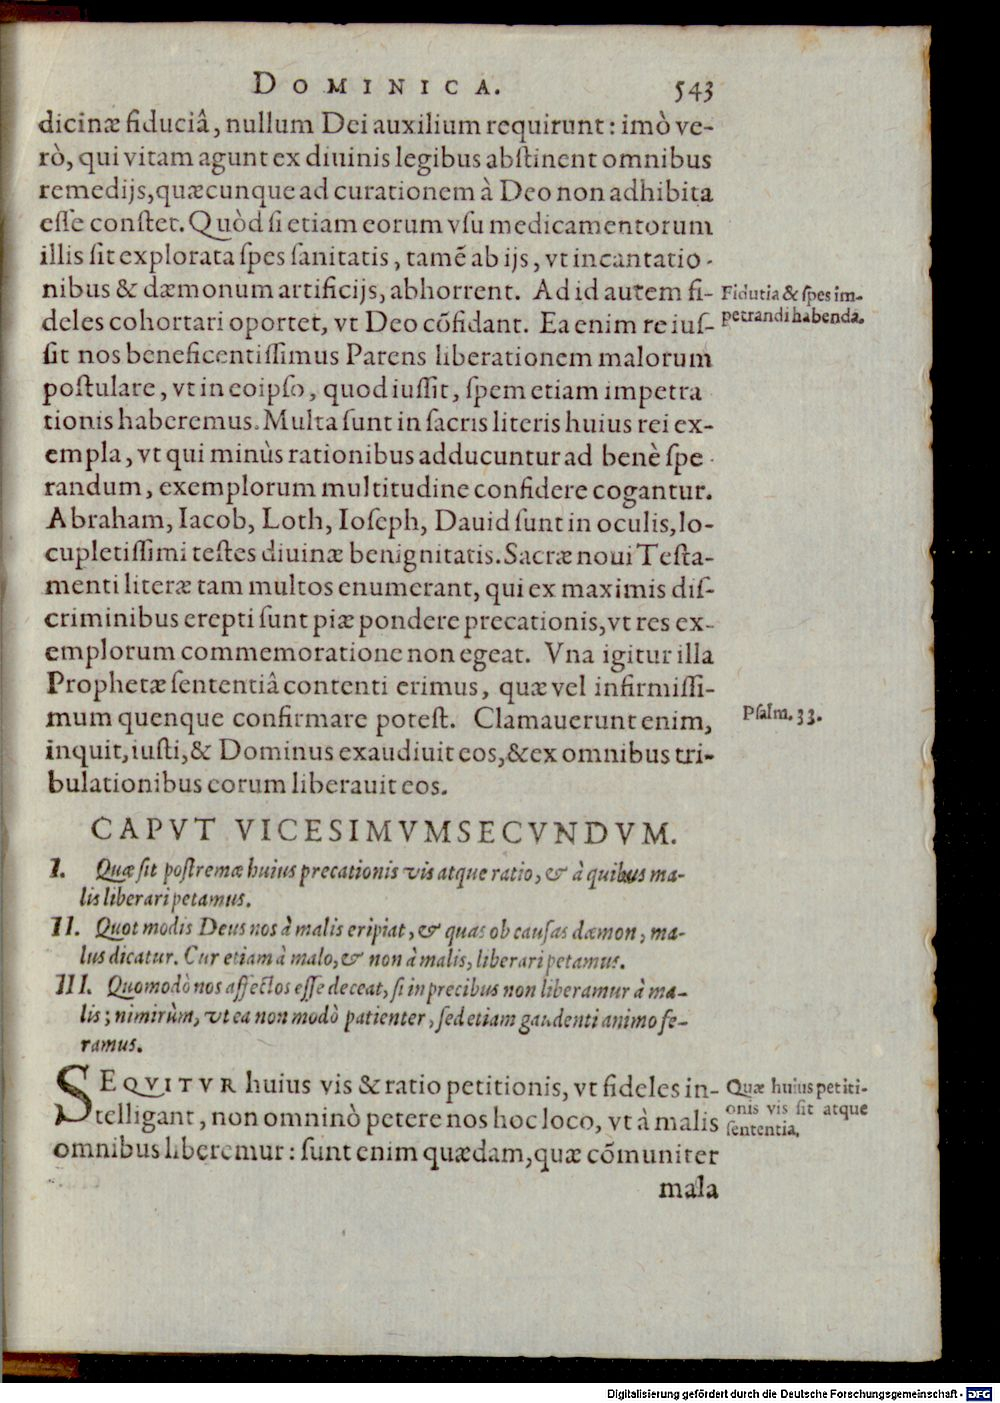 DOMINICA. 543
dicinæ fiduciâ, nullum Dei auxilium requirunt: imò ve-
rò, qui vitam agunt ex diuinis legibus abſtinent omnibus
remedijs, quæcunque ad curationem à Deo non adhibita
eſſe conſtet. Quòd ſi etiam eorum vſu medicamentorum
illis ſit explorata ſpes ſanitatis, tamẽ ab ijs, vt incantatio-
nibus & dæmonum artificijs, abhorrent. Ad id autem fi-
deles cohortari oportet, vt Deo cõfidant. Ea enim re iuſ-
ſit nos beneficentiſſimus Parens liberationem malorum
poſtulare, vt in eo ipſo, quod iuſſit, ſpem etiam impetra
tionis haberemus. Multa ſunt in ſacris literis huius rei ex-
empla, vt qui minùs rationibus adducuntur ad benè ſpe-
randum, exemplorum multitudine confidere cogantur.
Abraham, Iacob, Loth, Ioſeph, Dauid ſunt in oculis, lo-
cupletiſſimi teſtes diuinæ benignitatis. Sacræ noui Teſta-
menti literæ tam multos enumerant, qui ex maximis diſ-
criminibus erepti ſunt piæ pondere precationis, vt res ex-
emplorum commemoratione non egeat. Vna igitur illa
Prophetæ ſententiâ contenti erimus, quæ vel infirmiſſi-
mum quenque confirmare poteſt. Clamauerunt enim,
inquit, iuſti, & Dominus exaudiuit eos, & ex omnibus tri-
bulationibus eorum liberauit eos.
Fidutia & ſpes im-
petrandi habenda.
Pſalm. 33.
CAPVT VICESIMVMSECVNDVM.
I. Quæ ſit poſtremæ huius precationis vis atque ratio, & à quibus ma-
lis liberari petamus.
II. Quot modis Deus nos à malis eripiat, & quas ob cauſas dæmon, ma-
lus dicatur. Cur etiam à malo, & non à malis, liberari petamus.
III. Quomodò nos affectos eſſe deceat, ſi in precibus non liberamur à ma-
lis; nimirùm, vt ea non modò patienter, ſed etiam gaudenti animo fe-
ramus.
SEQVITVR huius vis & ratio petitionis, vt fideles in-
telligant, non omninò petere nos hoc loco, vt à malis
omnibus liberemur: ſunt enim quædam, quæ cõmuniter
mala
Quæ huius petiti-
onis vis ſit atque
ſententia.
Digitalisierung gefördert durch die Deutsche Forschungsgemeinschaft - DFG